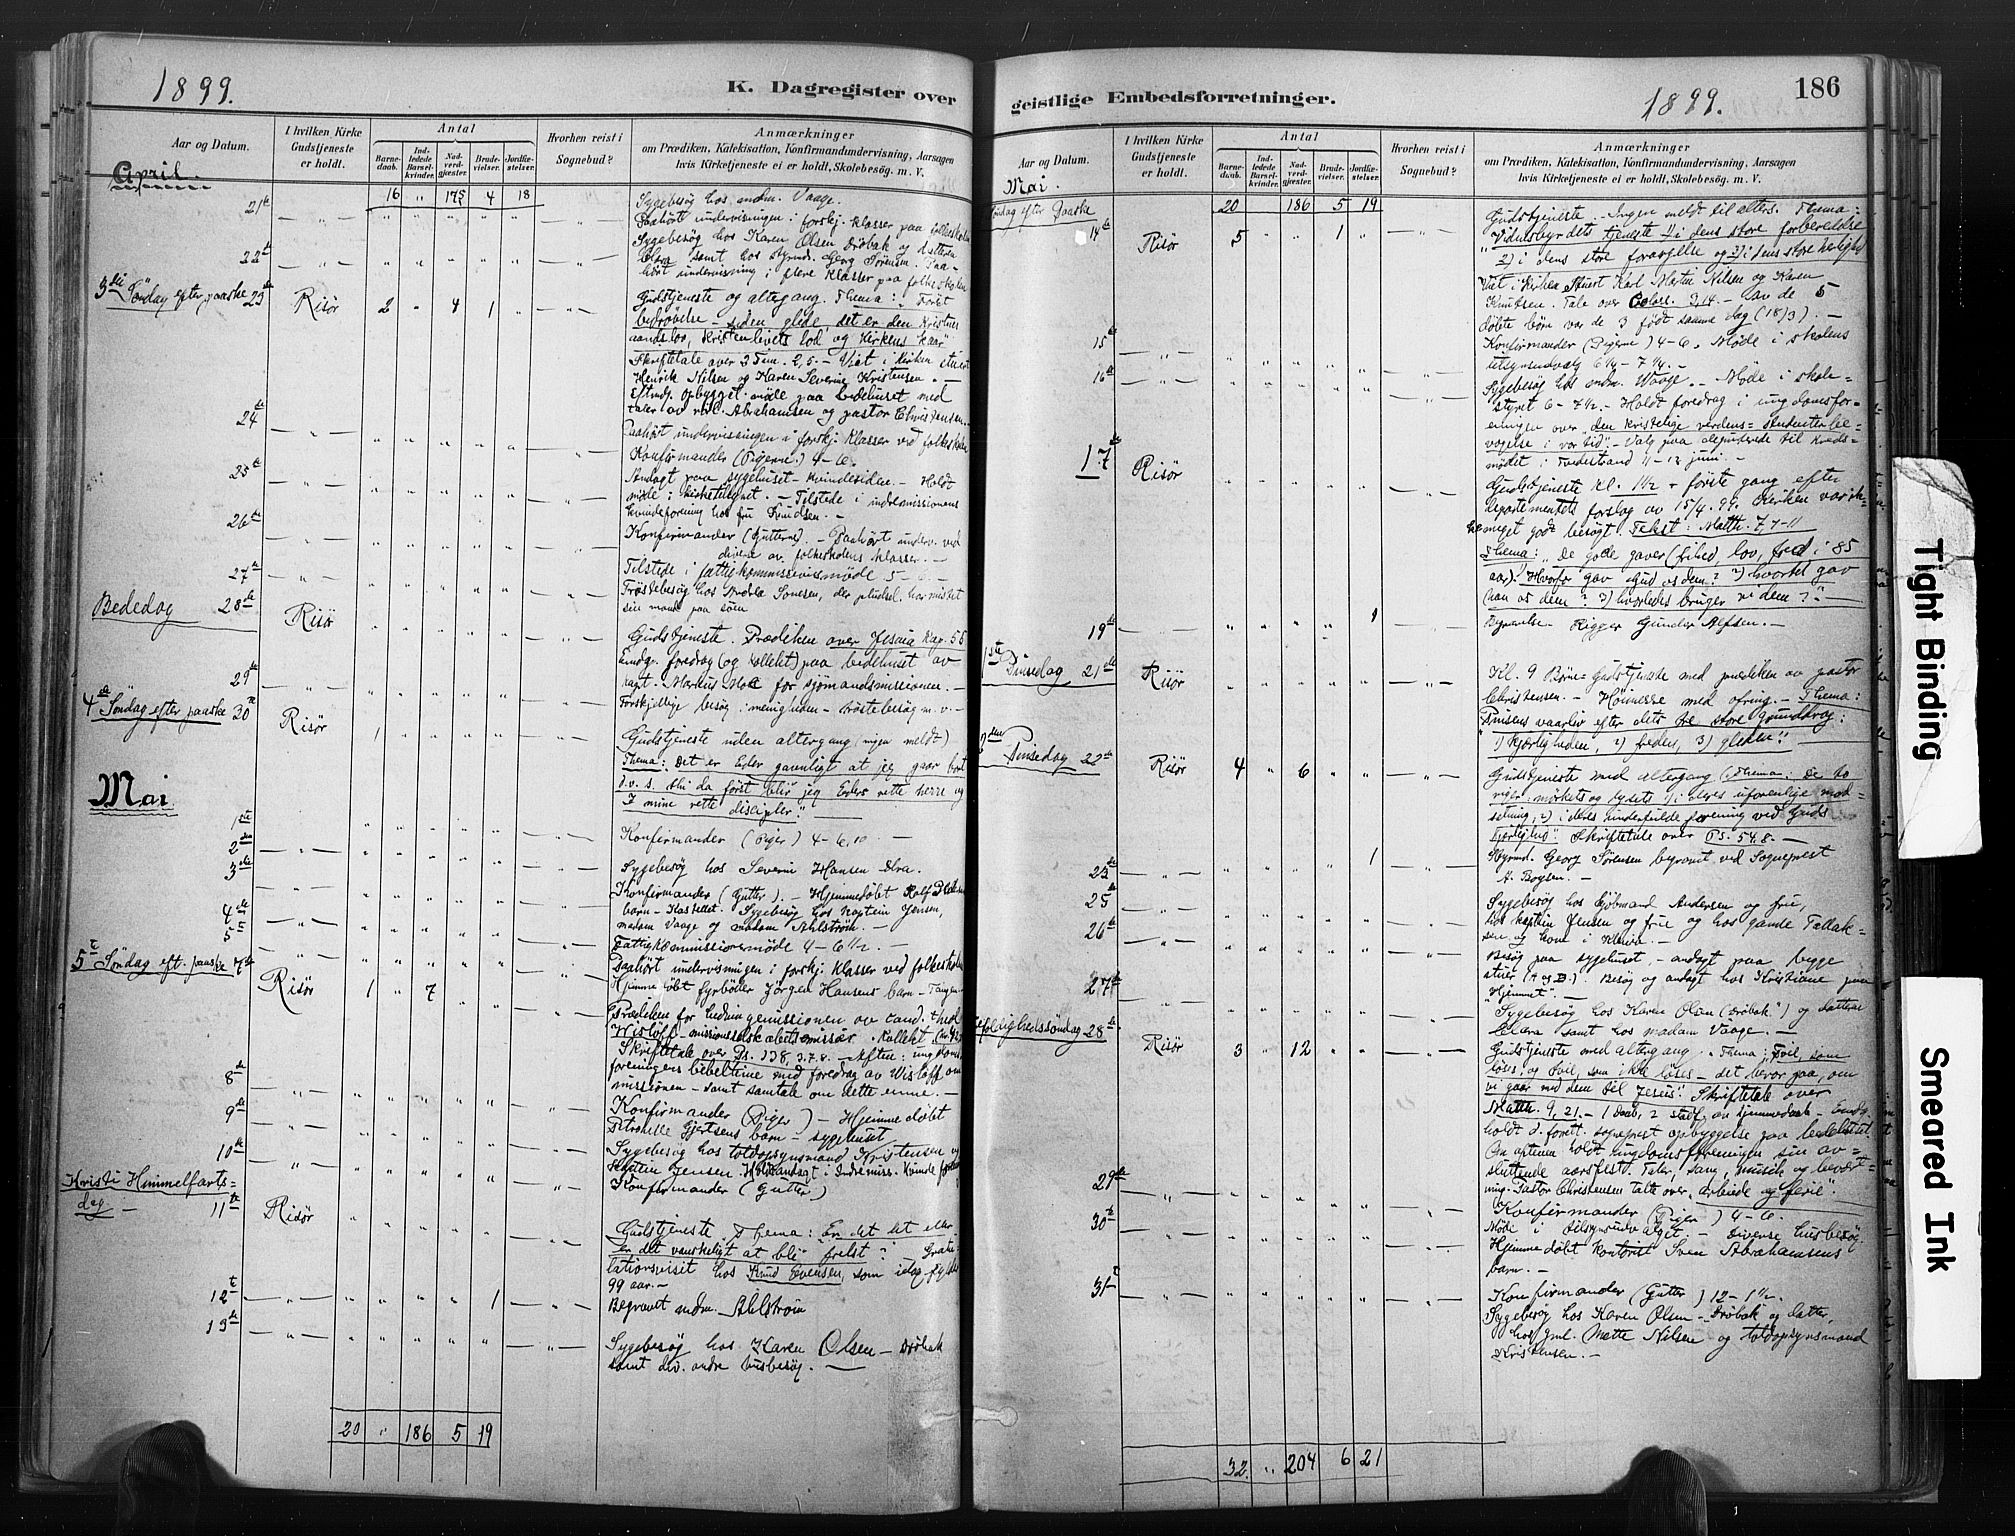 1899.
K. Dagregister over
Aar og Datum.
I hvilken Kirke Gudstjeneste er holdt.
Antal
Barnedaab.
Indledede Barselkvinder.
Nadverdgjæster.
Brudevielser.
Jordfæstelser.
Hvorhen reist i Sognebud?
Anmærkninger
om Prædiken, Katekisation, Konfirmandundervisning, Aarsagen
hvis Kirketjeneste ei er holdt, Skolebesøg. m. V.
April.
16 " 175 4 18
21de
Sygebesøg hos mdm. Vaage.
Paahørt undervisningen i forskj. klasser paa folkeskolen
22de
Sygebesøg hos Karen Olsen Drøbak og datteren
Clara samt hos styrmd. Georg Sørensen. Paa-
hørt undervisning i flere klasser paa folkeskolen
3die Søndag efter paaske 23de Risør 2 " 4 1
Gudstjeneste og altergang. Thema: "Først
bedrøvelse – siden glede, det er den kristnes
aandslov, kristenlivets lod og kirkens kaar"
Skriftetale over 2 Tim. 2,5. – Viet i kirken stuert
Henrik Nilsen og Karen Severine Kristensen. –
opbygget. møde paa bedehuset med
taler av Abrahamsen og pastor Christensen.
24de
Paahørt undervisningen i forskj. klasser ved folkeskolen
Konfirmander (Pigerne) 4-6.
25de
Andagt paa sygehuset – kvindesiden. – Holdt
møde i kirketilsynet. – Tilstede i indremissionens
kvindeforening hos fru Knudsen. –
26de
Konfirmander (Gutterne). – Paahørt underv. ved
diverse av folkeskolens klasser. –
27de
Tilstede i fattigkommissionsmøde 5-6. –
Trøstebesøg hos
sin mand paa søen
Bededag 28de Risør
Gudstjeneste. Prædiken over Jesaia kap. 55
foredrag (og kollekt) paa bedehuset av
for sjømandsmissionen. –
29de
Forskjellige besøg i menigheden – trøstebesøg m. v. –
4de Søndag efter paaske 30te Risør 1
Gudstjeneste uden altergang (ingen meldt)
Thema: "Det er Eder gavnligt at jeg gaar bort
d.v.s. thi da først blir jeg Eders rette herre og
I mine rette discipler". –
Mai
1ste
Konfirmander (Piger) 4-6.
2den
3die
Sygebesøg hos Severin Hansen
Konfirmander (Gutter). – Hjemmedøbt
barn – Kastellet. Sygebesøg hos kaptein Jensen,
madam Vaage og madam Ahlstrøm. –
4de
Fattigkommissionsmøde 4-6½. –
5te
Paahørt undervisningen i forskj. klasser ved folkeskolen
Hjemmedøbt fyrbøder Jørgen Hansens barn –
5te Søndag eft. paaske 7de Risør 1 " 7
Prædiken for hedningemissionen av cand. theol.
Wisløff – Kollekt
Skriftetale over Ps. 138, 3.7.8. – Aften: ungdoms-
foreningens med foredrag av Wisløff om
missionen – samt samtale om dette emne. –
8de
Konfirmander (Piger) – Hjemmedøbt
Petronelle Gjertsens barn – sygehuset
9de
Sygebesøg hos toldopsynsmand Kristensen og
kaptein Jensen. Holdt andagt i Indremiss. kvindeforening
10de
Konfirmander (Gutter)
Kristi Himmelfarts-
dag – 11te Risør
Gudstjeneste. Thema: "Er det let eller
er det vanskeligt at bli frelst" – Gratu-
lationsvisit hos Knud Evensen, som idag fylder
99 aar. –
12te 1
Begravet mdm. Ahlstrøm
13de
Sygebesøg hos Karen Olsen – Drøbak
samt div. andre husbesøg. –
20 " 186 5 19
geistlige Embedsforretninger.
1899.
186
Aar og Datum.
I hvilken Kirke Gudstjeneste er holdt.
Antal
Barnedaab.
Indledede Barselkvinder.
Nadverdgjæster.
Brudevielser.
Jordfæstelser.
Hvorhen reist i Sognebud?
Anmærkninger
om Prædiken, Katekisation, Konfirmandundervisning, Aarsagen
hvis Kirketjeneste ei er holdt, Skolebesøg. m. V.
Mai.
20 " 186 5 19
Søndag efter Paaske
14de Risør 5 " " 1
Gudstjeneste. Ingen meldt til alters. Thema:
"Vidnesbyrdets tjeneste 1) i dens store forberedelse
2) i dens store forargelse og 3) i dens store herlighed
Viet i kirken stuert Karl Martin Nilsen og Karen
Knutsen. Tale over Coloss. 3,14. – av de 5
døbte børn var de 3 født samme dag (18/3). –
15de
Konfirmander (Pigerne) 4-6. Møde i skolens
tilsynsudvalg 6¼ - 7¼. –
16de
Sygebesøg hos mdm. Vaage. – Møde i skole-
styret 6 - 7½. – Holdt foredrag i ungdomsfor-
eningen over "den kristelige verdens-studenterbe-
vægelse i vor tid". – Valg paa deputerede til kreds-
mødet i Tvedestrand 11-12 juni. –
17de Risør
Gudstjeneste kl. 1½ – første gang efter
departementets forslag av 15/4 99. Kirken var ik-
ke meget godt besøgt. Tekst: Matth. 7, 7-11
Thema: "De gode gaver (frihed, lov, fred i 85
aar). 1) Hvorfor gav Gud os dem? 2) hvortil gav
han os dem? 3) hvorledes bruger vi dem?" –
19de 1
Begravelse Rigger Gunder Alfsen. –
1ste Pinsedag 21de Risør
Kl. 9 Børne-Gudstjeneste med prædiken av pastor
Christensen. – Høimesse med ofring. – Thema:
"Pinsens vaarliv efter dets tre store grunddrag:
1) kjærligheden, 2) freden, 3) gleden". –
2den Pinsedag 22de Risør 4 " 6
Gudstjeneste med altergang (Thema: De to
riger: mørkets og lysets 1) i deres uforenlige mod-
setning, 2) i deres underfulde forening ved Guds
kjærlighed". Skriftetale over Ps. 54.8. –
23de 1
Styrmd. Georg Sørensen begravet ved Sogneprest
A. Boysen. –
25
Sygebesøg hos kjøbmand Andersen og frue,
hos kaptein Jensen og frue og hos gamle Tallak-
sen og kone i
26de
Besøg paa sygehuset – andagt paa begge
stuer (A og B). Besøg og andagt hos Kristiane paa
"Hjemmet". –
27de
Sygebesøg hos Karen Olsen ("Drøbak") og datteren
Clara samt hos madam Vaage. –
Trefoldighedssøndag 28de Risør 3 " 12
Gudstjeneste med altergang. Thema: "Tvil, som
løses, og tvil, som ikke løses – det beror paa, om
vi gaar med dem til Jesus". Skriftetale over
Matth. 9, 21. – 1 Daab, 2 stadf. av hjemmedaab –
holdt d. forrett. sogneprest opbyggelse paa bedehuset.
Om aftenen holdt ungdomsforeningen sin av-
sluttende aarsfest. Taler, sang, musik og bevert-
ning. Pastor Christensen talte over "arbeide og ferie".
29de
Konfirmander (Piger) 4-6.
30te
Møde i tilsynsudvalget – Diverse husbesøg.
Hjemmedøbt kontorist Sven Abrahamsens
barn. –
31te
Konfirmander (Gutter) 12-1½.
Sygebesøg hos Karen Olsen – Drøbak og datter,
hos gml. Mette Nilsen og toldopsynsmand
Kristensen. –
32. " 204 6 21
Tight Binding
Smeared Ink